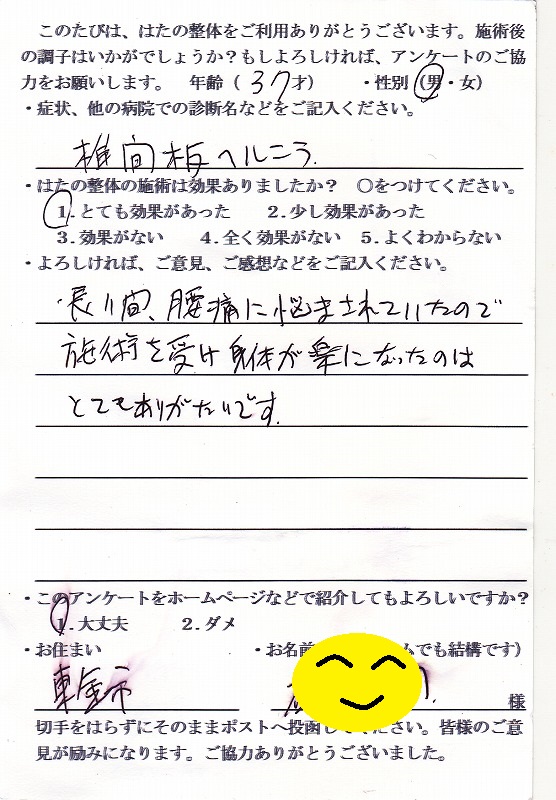 このたびは、はたの整体をご利用ありがとうございます。施術後
の調子はいかがでしょうか？もしよろしければ、アンケートのご協
力をお願いします。　年齢（ 37才）　　・性別（男・女）
・症状、他の病院での診断名などをご記入ください。
椎間板ヘルニう.
・はたの整体の施術は効果ありましたか？　○をつけてください。
1.とても効果があった　　2.少し効果があった
3.効果がない　　4.全く効果がない　5.よくわからない
・よろしければ、ご意見、ご感想などをご記入ください。
・長い間、腰痛に悩まされていたので
施術を受け身体が楽になったのは
とてもありがたいです.
・このアンケートをホームページなどで紹介してもよろしいですか？
1.大丈夫　　2.ダメ
・お住まい　　・お名前 ムでも結構です）
東金市　　様
切手をはらずにそのままポストへ投函してください。皆様のご意
見が励みになります。ご協力ありがとうございました。